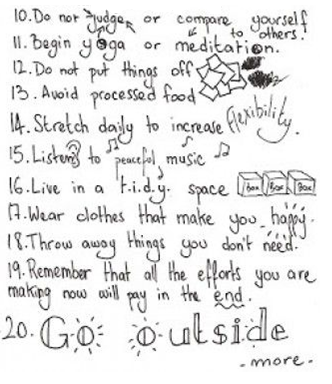 10. Do not judge or compare yourself
to others!
11. Begin yoga or meditation.
12. Do not put things off
13. Avoid processed food
14. Stretch daily to increase flexibility.
15. Listen to peaceful music
16. Live in a t.i.d.y. space Box Box Box
17. Wear clothes that make you happy.
18. Throw away things you don't need.
19. Remember that all the efforts you are
making now will pay in the end.
20. Go outside
- more -